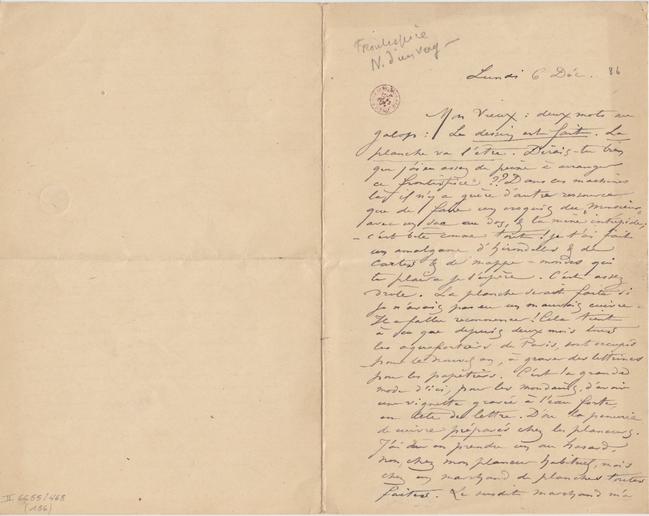 Frontispice
N. d'un voy—
Lundi 6 Déc. 86
Mon Vieux : deux mots au
galop : Le dessin est fait. La
planche va l'être. Dirais-tu
que j'ai eu assez de peine à arranger
ce frontispice ?? Dans ces machines
là, il n'y a guère d'autre ressource
que de faire un croquis du "Monsieur"
avec un sac au dos, & la mine intrépide,
– c'est bête comme tout! je t'ai fait
un amalgame d'hirondelles & de
cartes & de mappe-mondes qui
te plaira je l'espère. C'est assez
drôle. La planche serait faite si
je n'avais pas eu un mauvais cuivre –
Il a fallu recommencer! Cela tient
à ce que depuis deux mois tous
les aquafortistes de Paris, sont occupés
pour le nouvel an, à graver des lettrines
pour les papetiers. C'est la grande
mode d'ici, pour les mondains, d'avoir
une vignette gravée à l'eau forte,
en tête de lettre. D'où la pénurie
de cuivre préparés chez les planeurs.
J'ai dû en prendre un au hasard,
non chez mon planeur habituel, mais
chez un marchand de planches toutes
faites. Le susdit marchand m'a
II 6655/468
(186)